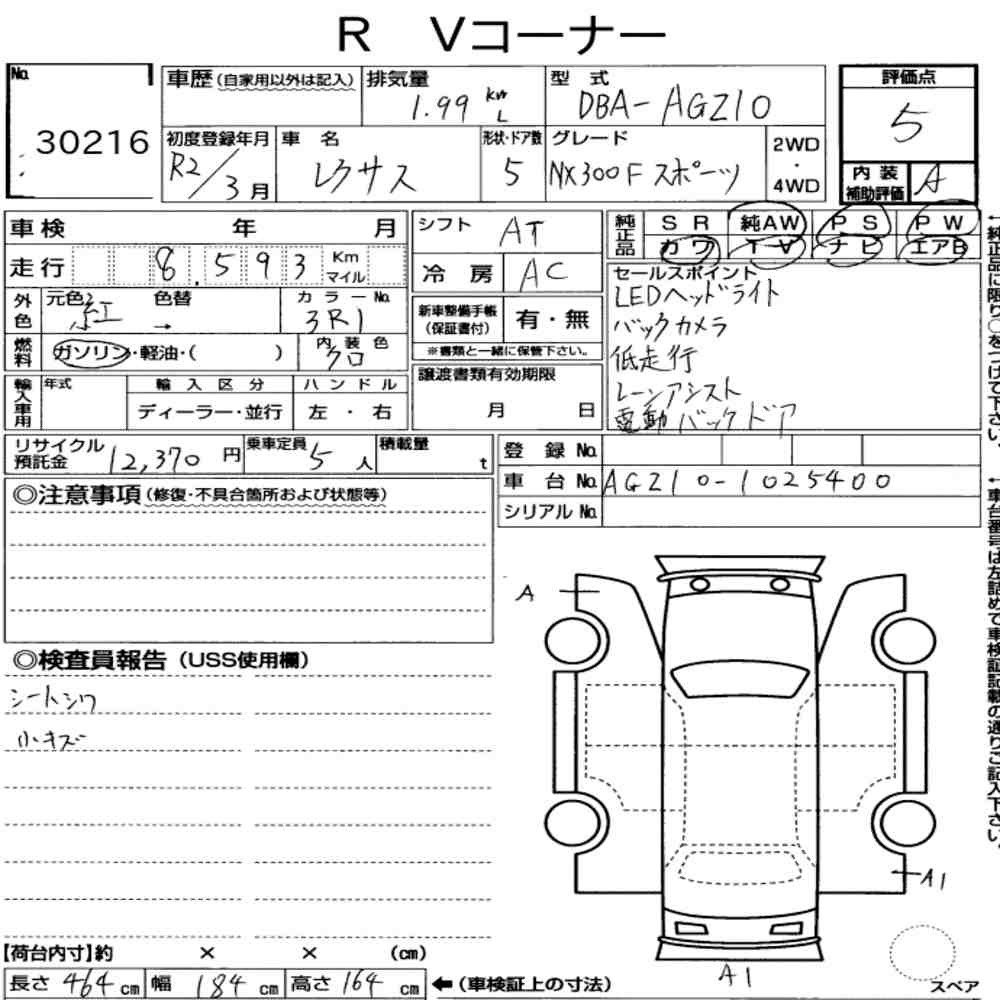 R Vコーナー
No. 30216
車歴(自家用以外は記入) 排気量 1.99 km L 型式 DBA-AGZ10
初度登録年月 R2/3月 車名 レクサス 形状・ドア数 5 グレード NX300 F スポーツ 2WD・4WD
評価点 5
内装補助評価 A
車検 年 月
走行 8,593 Km マイル
外色 元色 紅 色替 → カラーNo. 3R1
燃料 ガソリン・軽油・( ) 内装色 クロ
輸入車用 年式 輸入区分 ディーラー・並行 ハンドル 左・右
シフト AT
冷房 AC
新車整備手帳(保証書付) 有・無
※書類と一緒に保管下さい。
譲渡書類有効期限
月 日
純正品 SR 純AW PS PW
カワ TV ナビ エアB
セールスポイント
LEDヘッドライト
バックカメラ
低走行
レーンアシスト
電動バックドア
リサイクル預託金 12,370円 乗車定員 5人 積載量 t
登録No.
車台No. AGZ10-1025400
シリアルNo.
◎注意事項(修復・不具合箇所および状態等)
◎検査員報告(USS使用欄)
シートシワ
小キズ
A
A1
A1
【荷台内寸】約 × × (cm)
長さ 464 cm 幅 184 cm 高さ 164 cm ←(車検証上の寸法)
スペア
←純正品に限り○をつけて下さい。
←車台番号は左詰めで車検証記載の通りご記入下さい。